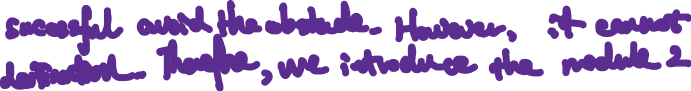 sucessful avoid the obstacle. However, it cannot
destination. Therefore, we introduce the module 2